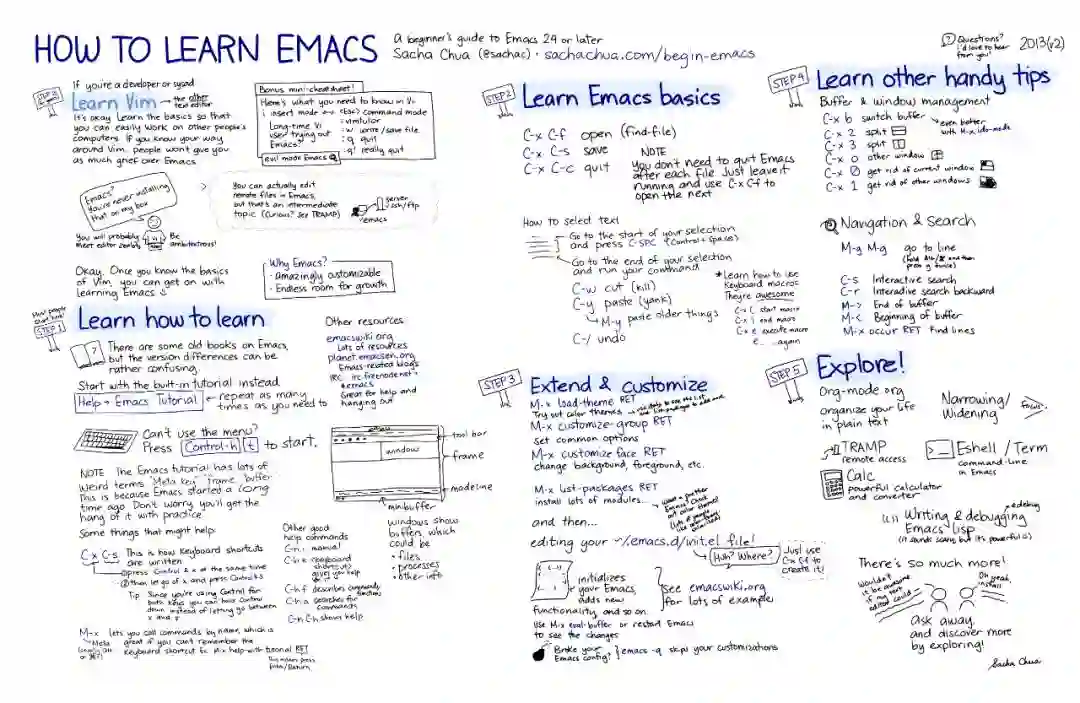 HOW TO LEARN EMACS
A beginner's guide to Emacs 24 or later
Sacha Chua (@sachac) · sachachua.com/begin-emacs
Questions?
I'd love to hear
from you!
2013(v2)
If you're a developer or sysad
Learn Vim → the other
text editor
It's okay Learn the basics so that
you can easily work on other people's
computers. If you know your way
around Vim, people won't give you
as much grief over Emacs
Bonus mini-cheatsheet!
Here's what you need to know in Vi
i insert mode <-> <Esc> command mode
Long-time Vi
user trying out
Emacs?
evil mode Emacs
:vimtutor
:w write/save file
:q quit
:q! really quit
Emacs?
You're never installing
that on my box
You will probably
meet editor zealots
Be
ambitextrous!
You can actually edit
remote files in Emacs,
but that's an intermediate
topic (Curious? See TRAMP)
server
ssh/ftp
emacs
Okay. Once you know the basics
of Vim, you can get on with
learning Emacs
Why Emacs?
· amazingly customizable
· Endless room for growth
Most people
start here!
STEP 1
Learn how to learn
There are some old books on Emacs,
but the version differences can be
rather confusing.
Start with the built-in tutorial instead
Help → Emacs Tutorial ← repeat as many
times as you need to
Can't use the menu?
Press Control-h t to start.
Other resources
emacswiki.org
Lots of resources
planet.emacsen.org
Emacs-related blogs
IRC irc.freenode.net
#emacs
Great for help and
hanging out
NOTE The Emacs tutorial has lots of
weird terms "Meta key" "frame" "buffer"
This is because Emacs started a long
time ago Don't worry, you'll get the
hang of it with practice
window
tool bar
frame
modeline
minibuffer
Some things that might help:
C-x C-s This is how keyboard shortcuts
are written
① press Control & x at the same time
② then let go of x and press Control & s
Tip Since you're using Control for
both keys you can hold Control
down instead of letting go between
x and s
M-x lets you call commands by name, which is
great if you can't remember the
keyboard shortcut Ex M-x help-with-tutorial RET
Meta
This means press
Enter/Return
Other good
help commands
C-h i manual
C-h k (keyboard
shortcut)
gives you help
C-h f describes commands
functions
C-h a searches for
commands
C-h C-h shows help
windows show
buffers, which
could be
· files
· processes
· other info
STEP 2
Learn Emacs basics
C-x C-f open (find-file)
C-x C-s save
C-x C-c quit
NOTE
You don't need to quit Emacs
after each file Just leave it
running and use C-x C-f to
open the next
How to select text
Go to the start of your selection
and press C-SPC (Control + Space)
Go to the end of your selection
and run your command
C-w cut (kill)
C-y paste (yank)
M-y paste older things
C-/ undo
*Learn how to use
keyboard macros
They're awesome
C-x ( start macro
C-x ) end macro
C-x e execute macro
e... ...again
STEP 3
Extend & customize
M-x load-theme RET
Try out color themes
M-x customize-group RET
Set common options
M-x customize face RET
change background, foreground, etc.
M-x list-packages RET
install lots of modules...
and then...
editing your ~/.emacs.d/init.el file!
Huh? Where?
Just use
C-x C-f to
create it!
initializes
your Emacs,
adds new
functionality, and so on
see emacswiki.org
for lots of examples
Use M-x eval-buffer or restart Emacs
to see the changes
Broke your
Emacs config?
emacs -q skips your customizations
STEP 4
Learn other handy tips
Buffer & window management
C-x b switch buffer
even better
with M-x ido-mode
C-x 2 split
C-x 3 split
C-x o other window
C-x 0 get rid of current window
C-x 1 get rid of other windows
Navigation & Search
M-g M-g go to line
C-s Interactive search
C-r Interactive search backward
M-> End of buffer
M-< Beginning of buffer
M-x occur RET find lines
STEP 5
Explore!
Org-mode.org
organize your life
in plain text
Narrowing/
Widening
Focus!
TRAMP
remote access
Eshell / Term
command-line
in Emacs
Calc
powerful calculator
and converter
Writing & debugging
Emacs Lisp
edebug
(it sounds scary, but it's powerful)
There's so much more!
Wouldn't
it be awesome
if my text
editor could
Oh yeah,
install
ask away,
and discover more
by exploring!
Sacha Chua